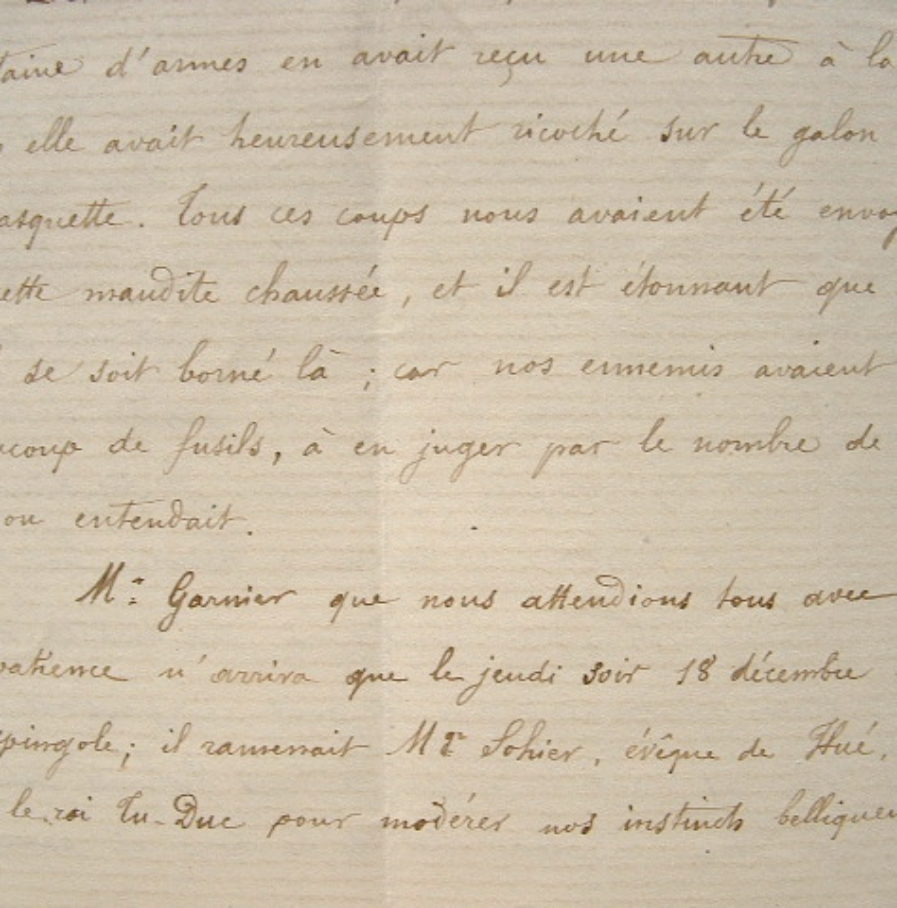 taine d'armes en avait reçu une autre à la
elle avait heureusement ricoché sur le galon
asquette. Tous ces coups nous avaient été envoy
ette maudite chaussée, et il est étonnant que
se soit borné là ; car nos ennemis avaient
ucoup de fusils, à en juger par le nombre de
on entendait.
Mr. Garnier que nous attendions tous avec
patience n'arriva que le jeudi soir 18 décembre
spingole; il ramenait Mgr Sohier, évêque de Hué,
le roi Tu-Duc pour modérer nos instincts belliqueu